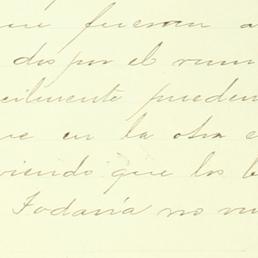 ue fueran a
dos por el rum
cilmente pueden
ue en la otra e
viendo que los b
Todavía no nu